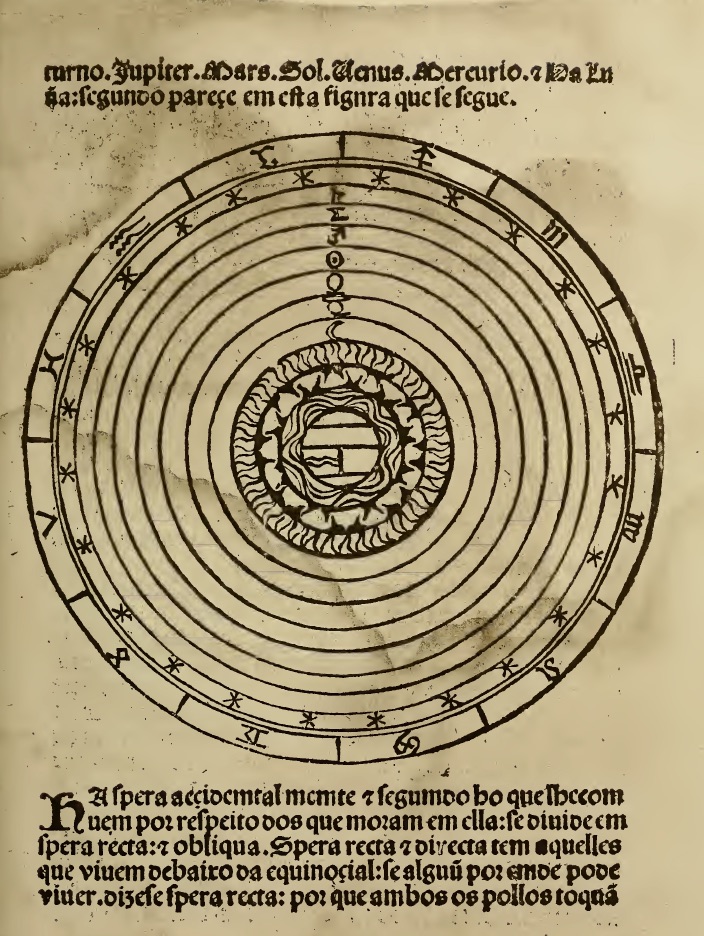 turno.Jupiter.Mars.Sol.Uenus.Mercurio.⁊ Ha Lu
ña:segundo pareçe em esta fignra que se segue.
HA spera acçidemtal memte ⁊ segumdo ho que lhe com
uem por respeito dos que moram em ella:se diuide em
spera recta:⁊ obliqua.Spera recta ⁊ directa tem aquelles
que viuem debaixo da equinoçial:se alguũ por ende pode
viuer.dizese spera recta: por que ambos os pollos toquã